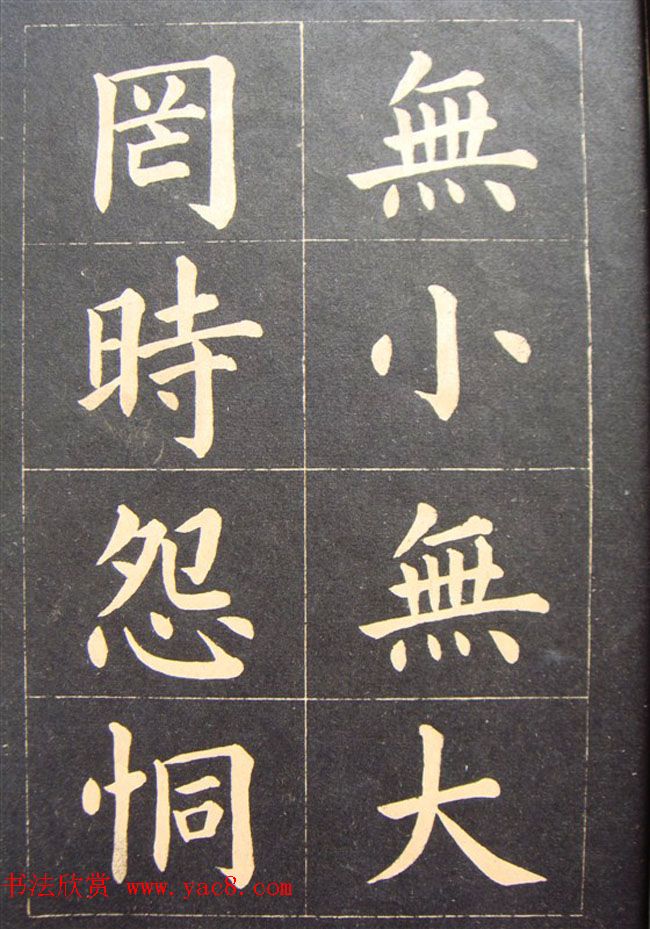 無小無大
罔時怨恫
书法欣赏 www.yac8.com